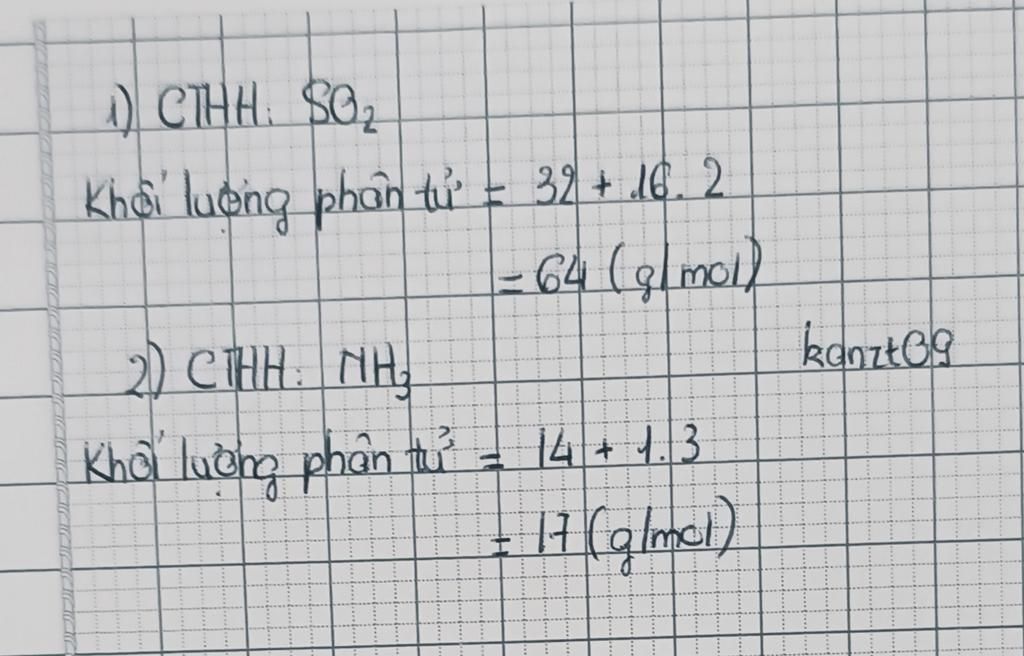 1) CTHH: SO₂
Khối lượng phân tử = 32 + 16.2
= 64 (g/mol)
2) CTHH: NH₃
kanzt09
Khối lượng phân tử = 14 + 1.3
= 17 (g/mol)